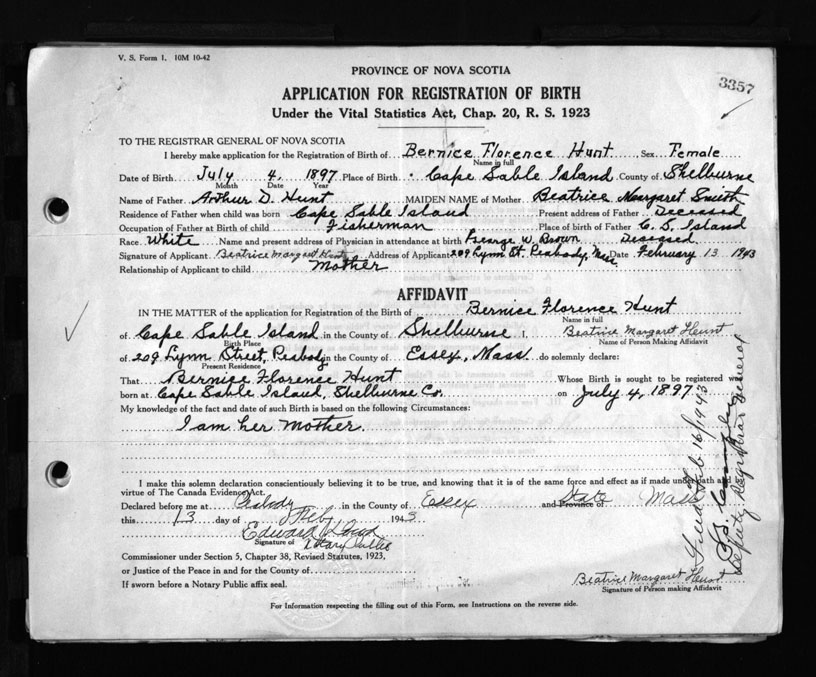 V. S. Form 1. 10M 10-42
3357
PROVINCE OF NOVA SCOTIA
APPLICATION FOR REGISTRATION OF BIRTH
Under the Vital Statistics Act, Chap. 20, R. S. 1923
TO THE REGISTRAR GENERAL OF NOVA SCOTIA
I hereby make application for the Registration of Birth of Bernice Florence Hunt Sex Female
Name in full
Date of Birth July 4, 1897 Place of Birth Cape Sable Island County of Shelburne
Month Date Year
Name of Father Arthur D. Hunt MAIDEN NAME of Mother Beatrice Margaret Smith
Residence of Father when child was born Cape Sable Island Present address of Father Deceased
Occupation of Father at Birth of child Fisherman Place of Birth of Father C. S. Island
Race White Name and present address of Physician in attendance at birth George W. Brown Deceased
Signature of Applicant Beatrice Margaret Hunt Address of Applicant 209 Lynn St. Peabody, Mass Date February 13 1943
Relationship of Applicant to child Mother
AFFIDAVIT
IN THE MATTER of the application for Registration of the Birth of Bernice Florence Hunt
Name in full
of Cape Sable Island in the County of Shelburne I, Beatrice Margaret Hunt
Birth Place Name of Person Making Affidavit
of 209 Lynn Street, Peabody in the County of Essex, Mass. do solemnly declare:
Present Residence
That Bernice Florence Hunt Whose Birth is sought to be registered was
born at Cape Sable Island, Shelburne Co. on July 4, 1897
My knowledge of the fact and date of such Birth is based on the following Circumstances:
I am her Mother.
I make this solemn declaration conscientiously believing it to be true, and knowing that it is of the same force and effect as if made under oath and by
virtue of The Canada Evidence Act.
Declared before me at Peabody in the County of Essex and Province of State Mass
this 13 day of Feb 1943
Edward
Signature of Notary Public
Commissioner under Section 5, Chapter 38, Revised Statutes, 1923,
or Justice of the Peace in and for the County of
If sworn before a Notary Public affix seal.
Beatrice Margaret Hunt
Signature of Person making Affidavit
For Information respecting the filling out of this Form, see Instructions on the reverse side.
Filed Feb 16/1943
Deputy Registrar General